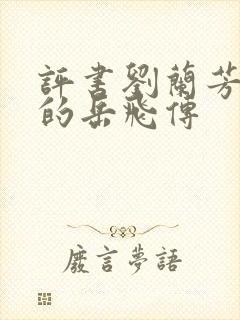 評書劉蘭芳
的岳飛傳
廢言夢語